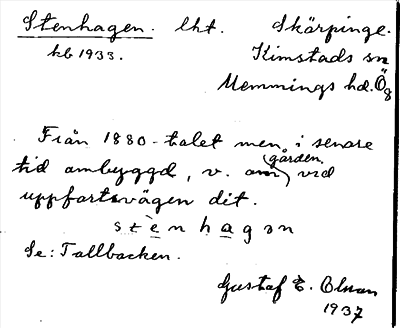 Stenhagen. lht. Skärpinge.
kb 1933. Kimstads sn
Memmings hd. Ög
Från 1880-talet men i senare
tid ombyggd, v. om gården, vid
uppfartsvägen dit.
stènhagən
Se: Tallbacken.
Gustaf E. Olsson
1937